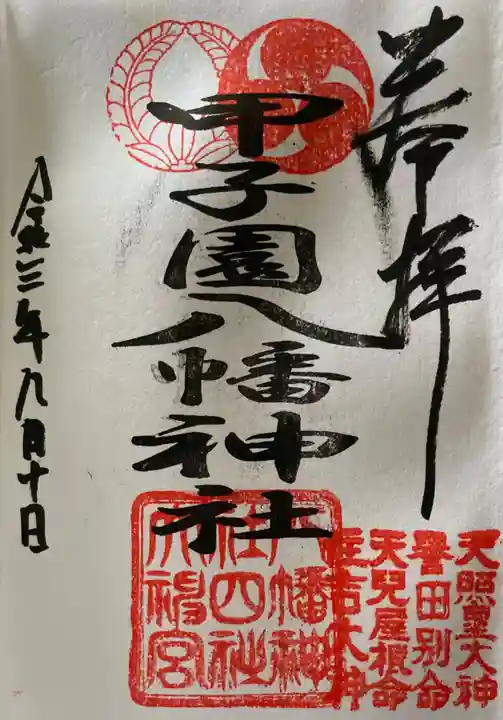 奉拝
甲子園八幡神社
天照皇大神
誉田別命
天児屋根命
住吉大神
八幡神
社四社
大神宮
令和三年九月十日